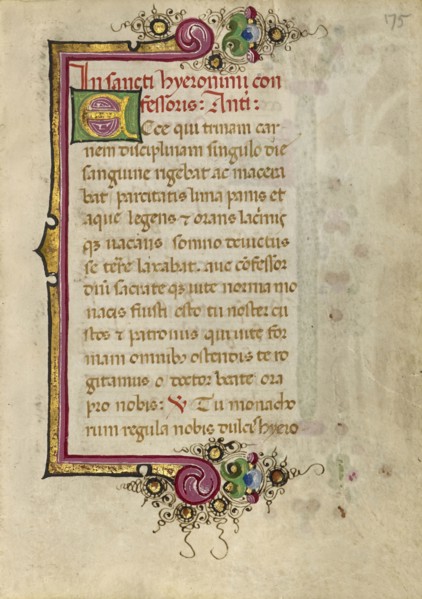 175
In sancti hyeronimi con
fessoris: Anti:
Ecce qui trinam car
nem disciplinam singulo die
sanguine rigebat ac macera
bat parcitatis lima panis et
aque legens ⁊ orans lacrimis
qꝫ vacans somno devictus
se terre laxabat. ave cōfessor
diu̅ sacrate qꝫ vite norma mo
nacis fiusti esto tu noster cu
stos ⁊ patronus qui vite for
mam omnibꝫ ostendis te ro
gitamus o doctor beate ora
pro nobis: ℣ Tu monacho
rum regula nobis dulcis hyero